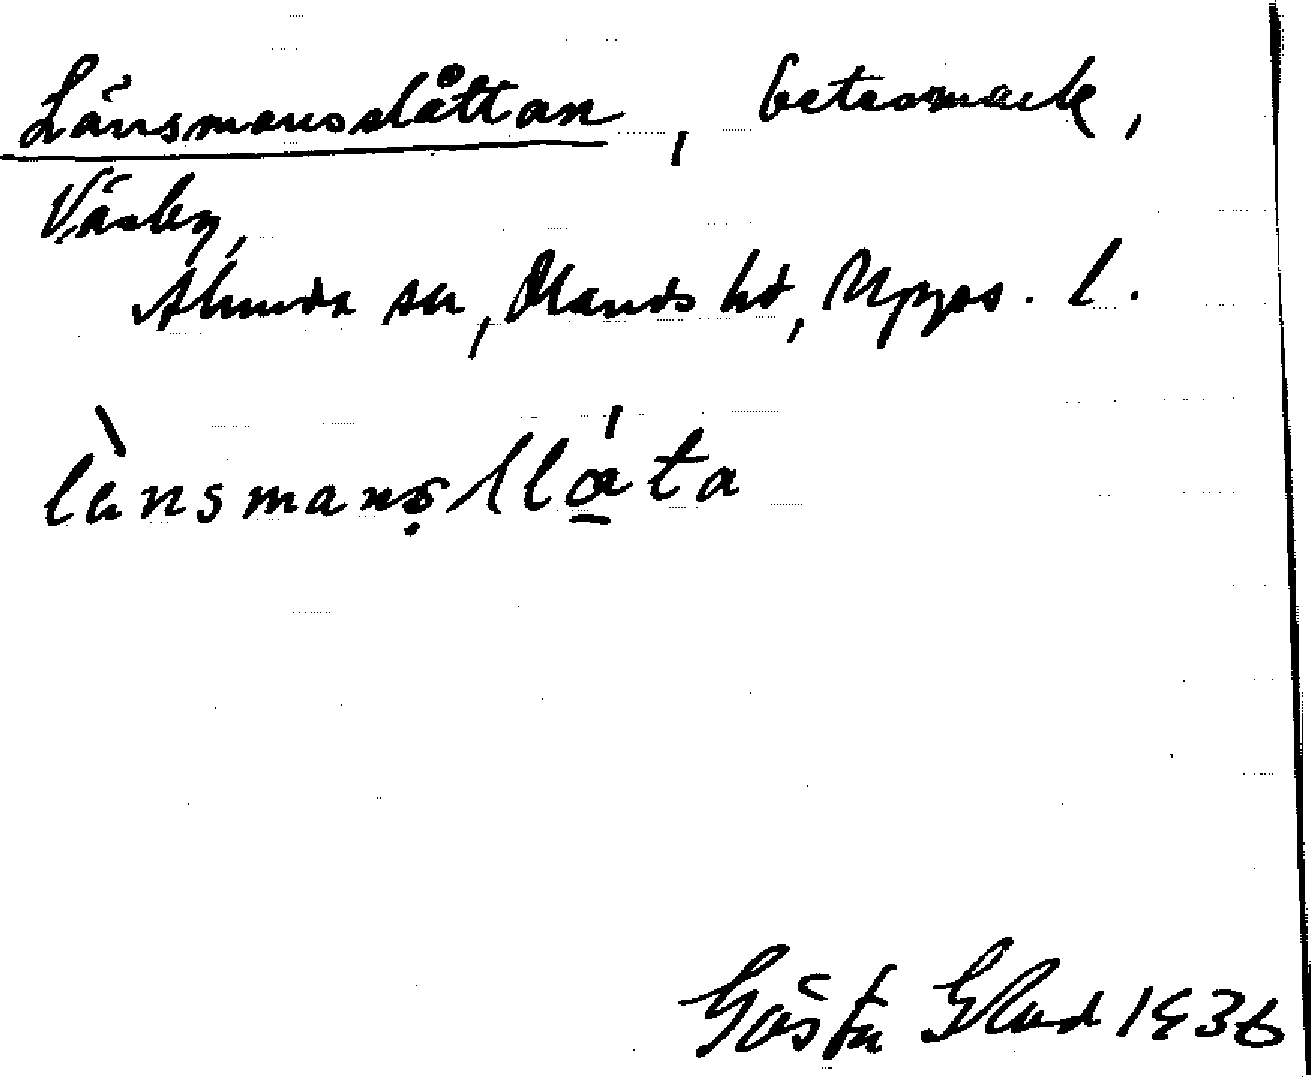 Länsmansslåttan, betesmark,
Väsby,
Alunda sn, Olands hd, Upps. l.
lànsmansslǻta
Gösta Glad 1936